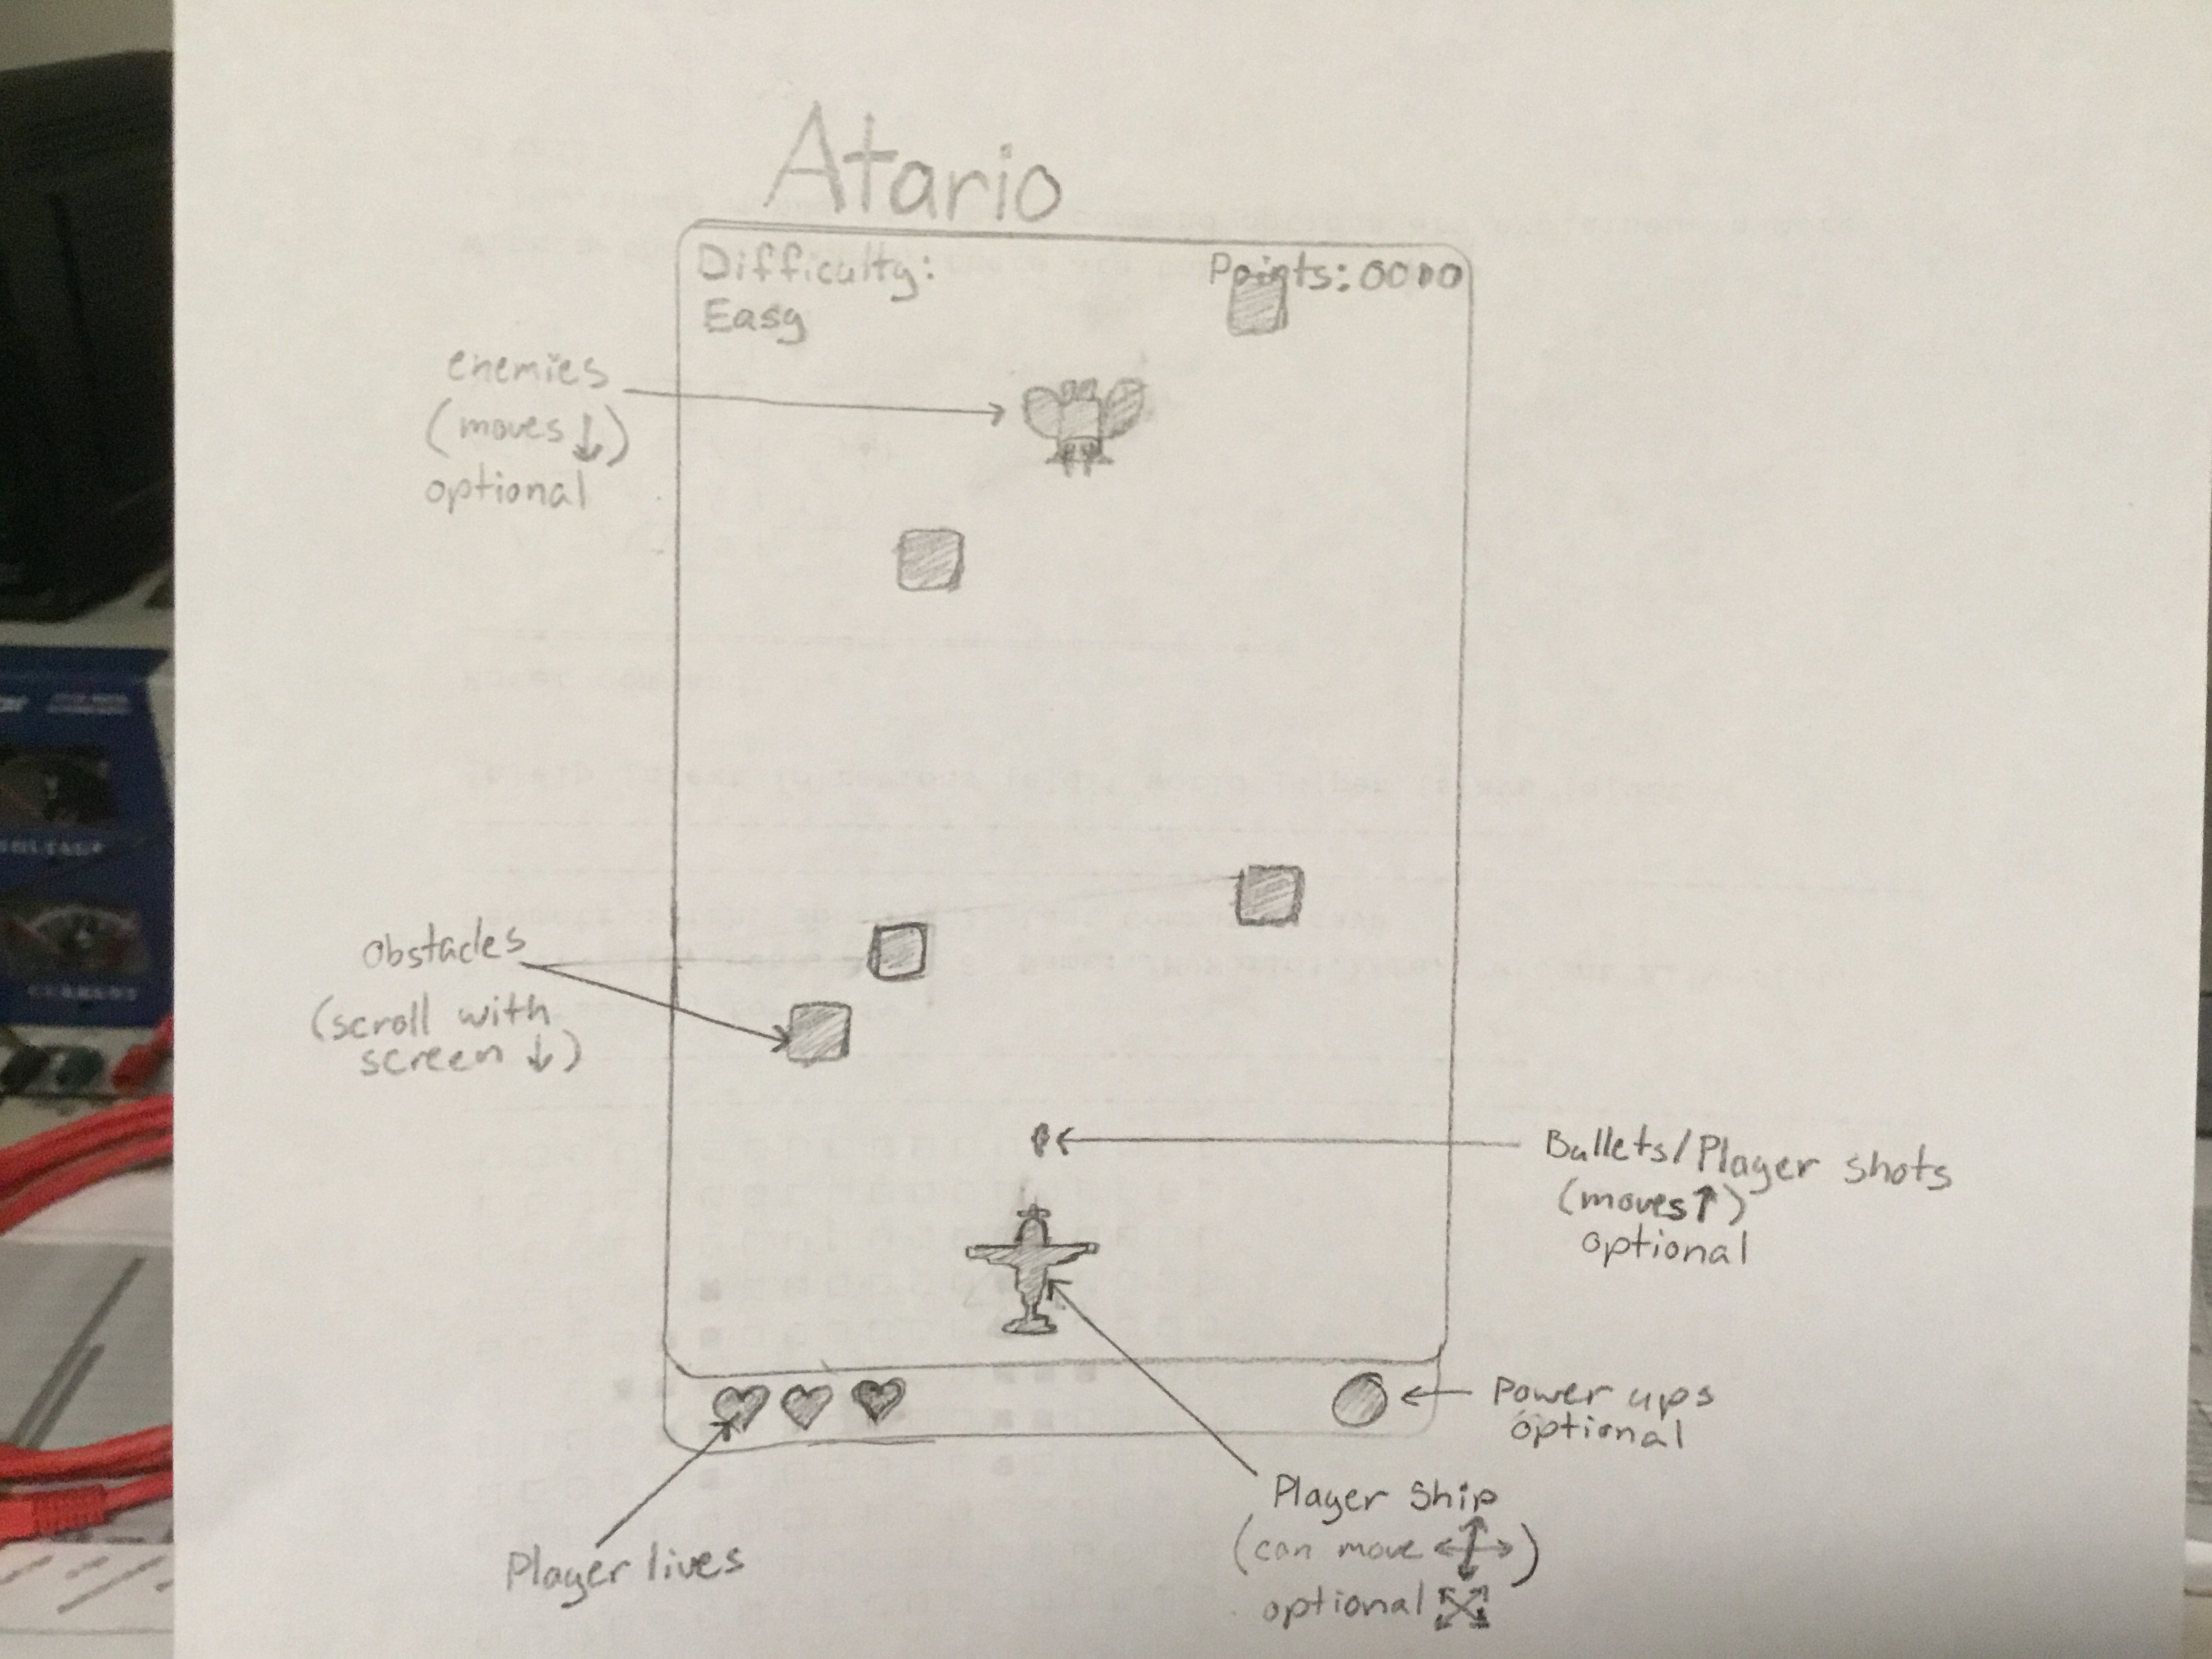 Atario
Difficulty:
Easy
Points: 0000
enemies
(moves ↓)
optional
Obstacles
(scroll with
screen ↓)
Bullets/Player shots
(moves ↑)
optional
Power ups
optional
Player Ship
(can move
)
optional
Player lives
CURRENT